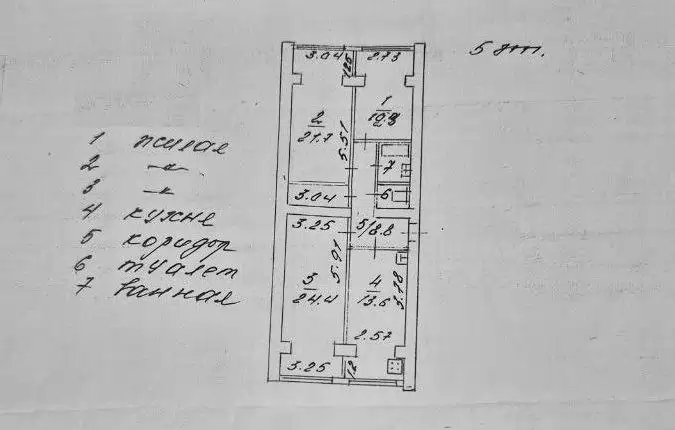 5 эт.
1 жилая
2 -"-
3 -"-
4 кухне
5 коридор
6 туалет
7 ванная
3.04
2.73
1.25
2
21.7
1
5.51
7
6
3.04
3.25
5/8.8
5.91
3
24.4
4
13.6
5.18
2.57
3.25
1.2